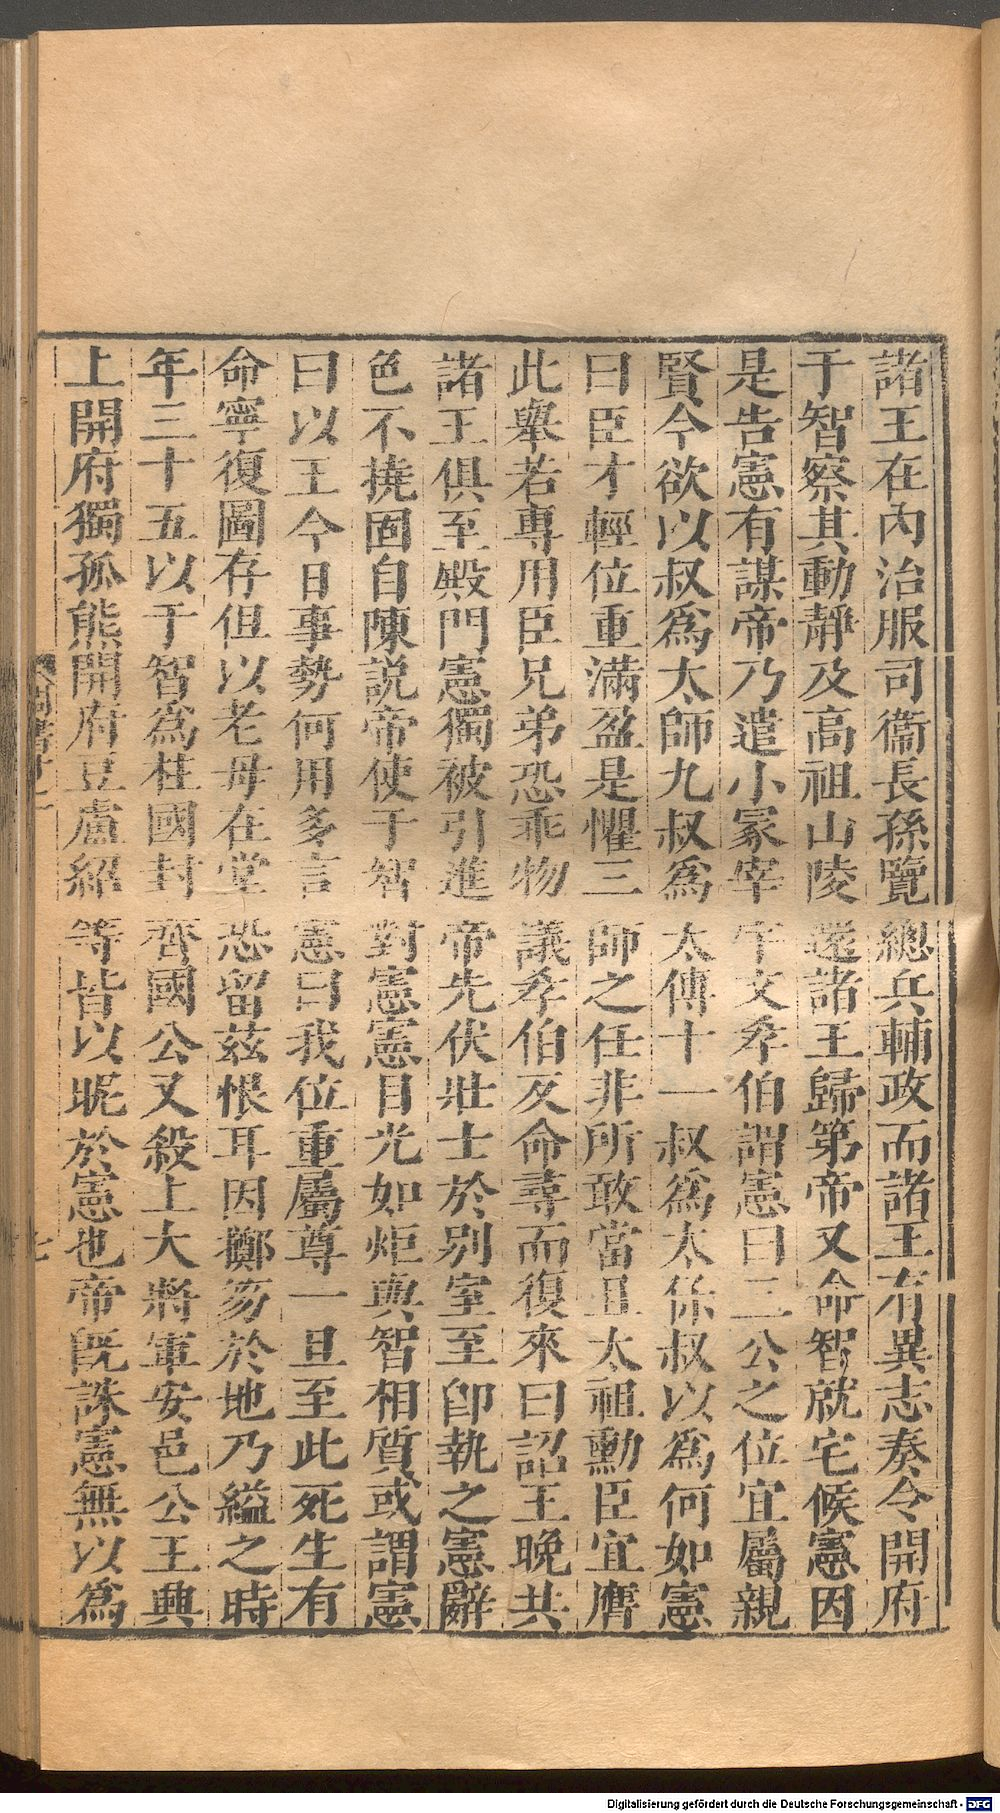 諸王在內治服司衞長孫覽總兵輔政而諸王有異志奏令開府
于智察其動靜及高祖山陵還諸王歸第帝又命智就宅候憲因
是告憲有謀帝乃遣小冢宰宇文孝伯謂憲曰三公之位宜屬親
賢今欲以叔爲太師九叔爲太傅十一叔爲太保叔以爲何如憲
曰臣才輕位重滿盈是懼三師之任非所敢當且太祖勳臣宜膺
此舉若專用臣兄弟恐乖物議孝伯反命尋而復來曰詔王晚共
諸王俱至殿門憲獨被引進帝先伏壯士於別室至卽執之憲辭
色不撓固自陳説帝使于智對憲憲目光如炬與智相質或謂憲
曰以王今日事勢何用多言憲曰我位重屬尊一旦至此死生有
命寧復圖存但以老母在堂恐留茲恨耳因擲笏於地乃縊之時
年三十五以于智爲柱國封齊國公又殺上大將軍安邑公王興
上開府獨孤熊開府豆盧紹等皆以昵於憲也帝旣誅憲無以爲
Digitalisierung gefördert durch die Deutsche Forschungsgemeinschaft - DFG